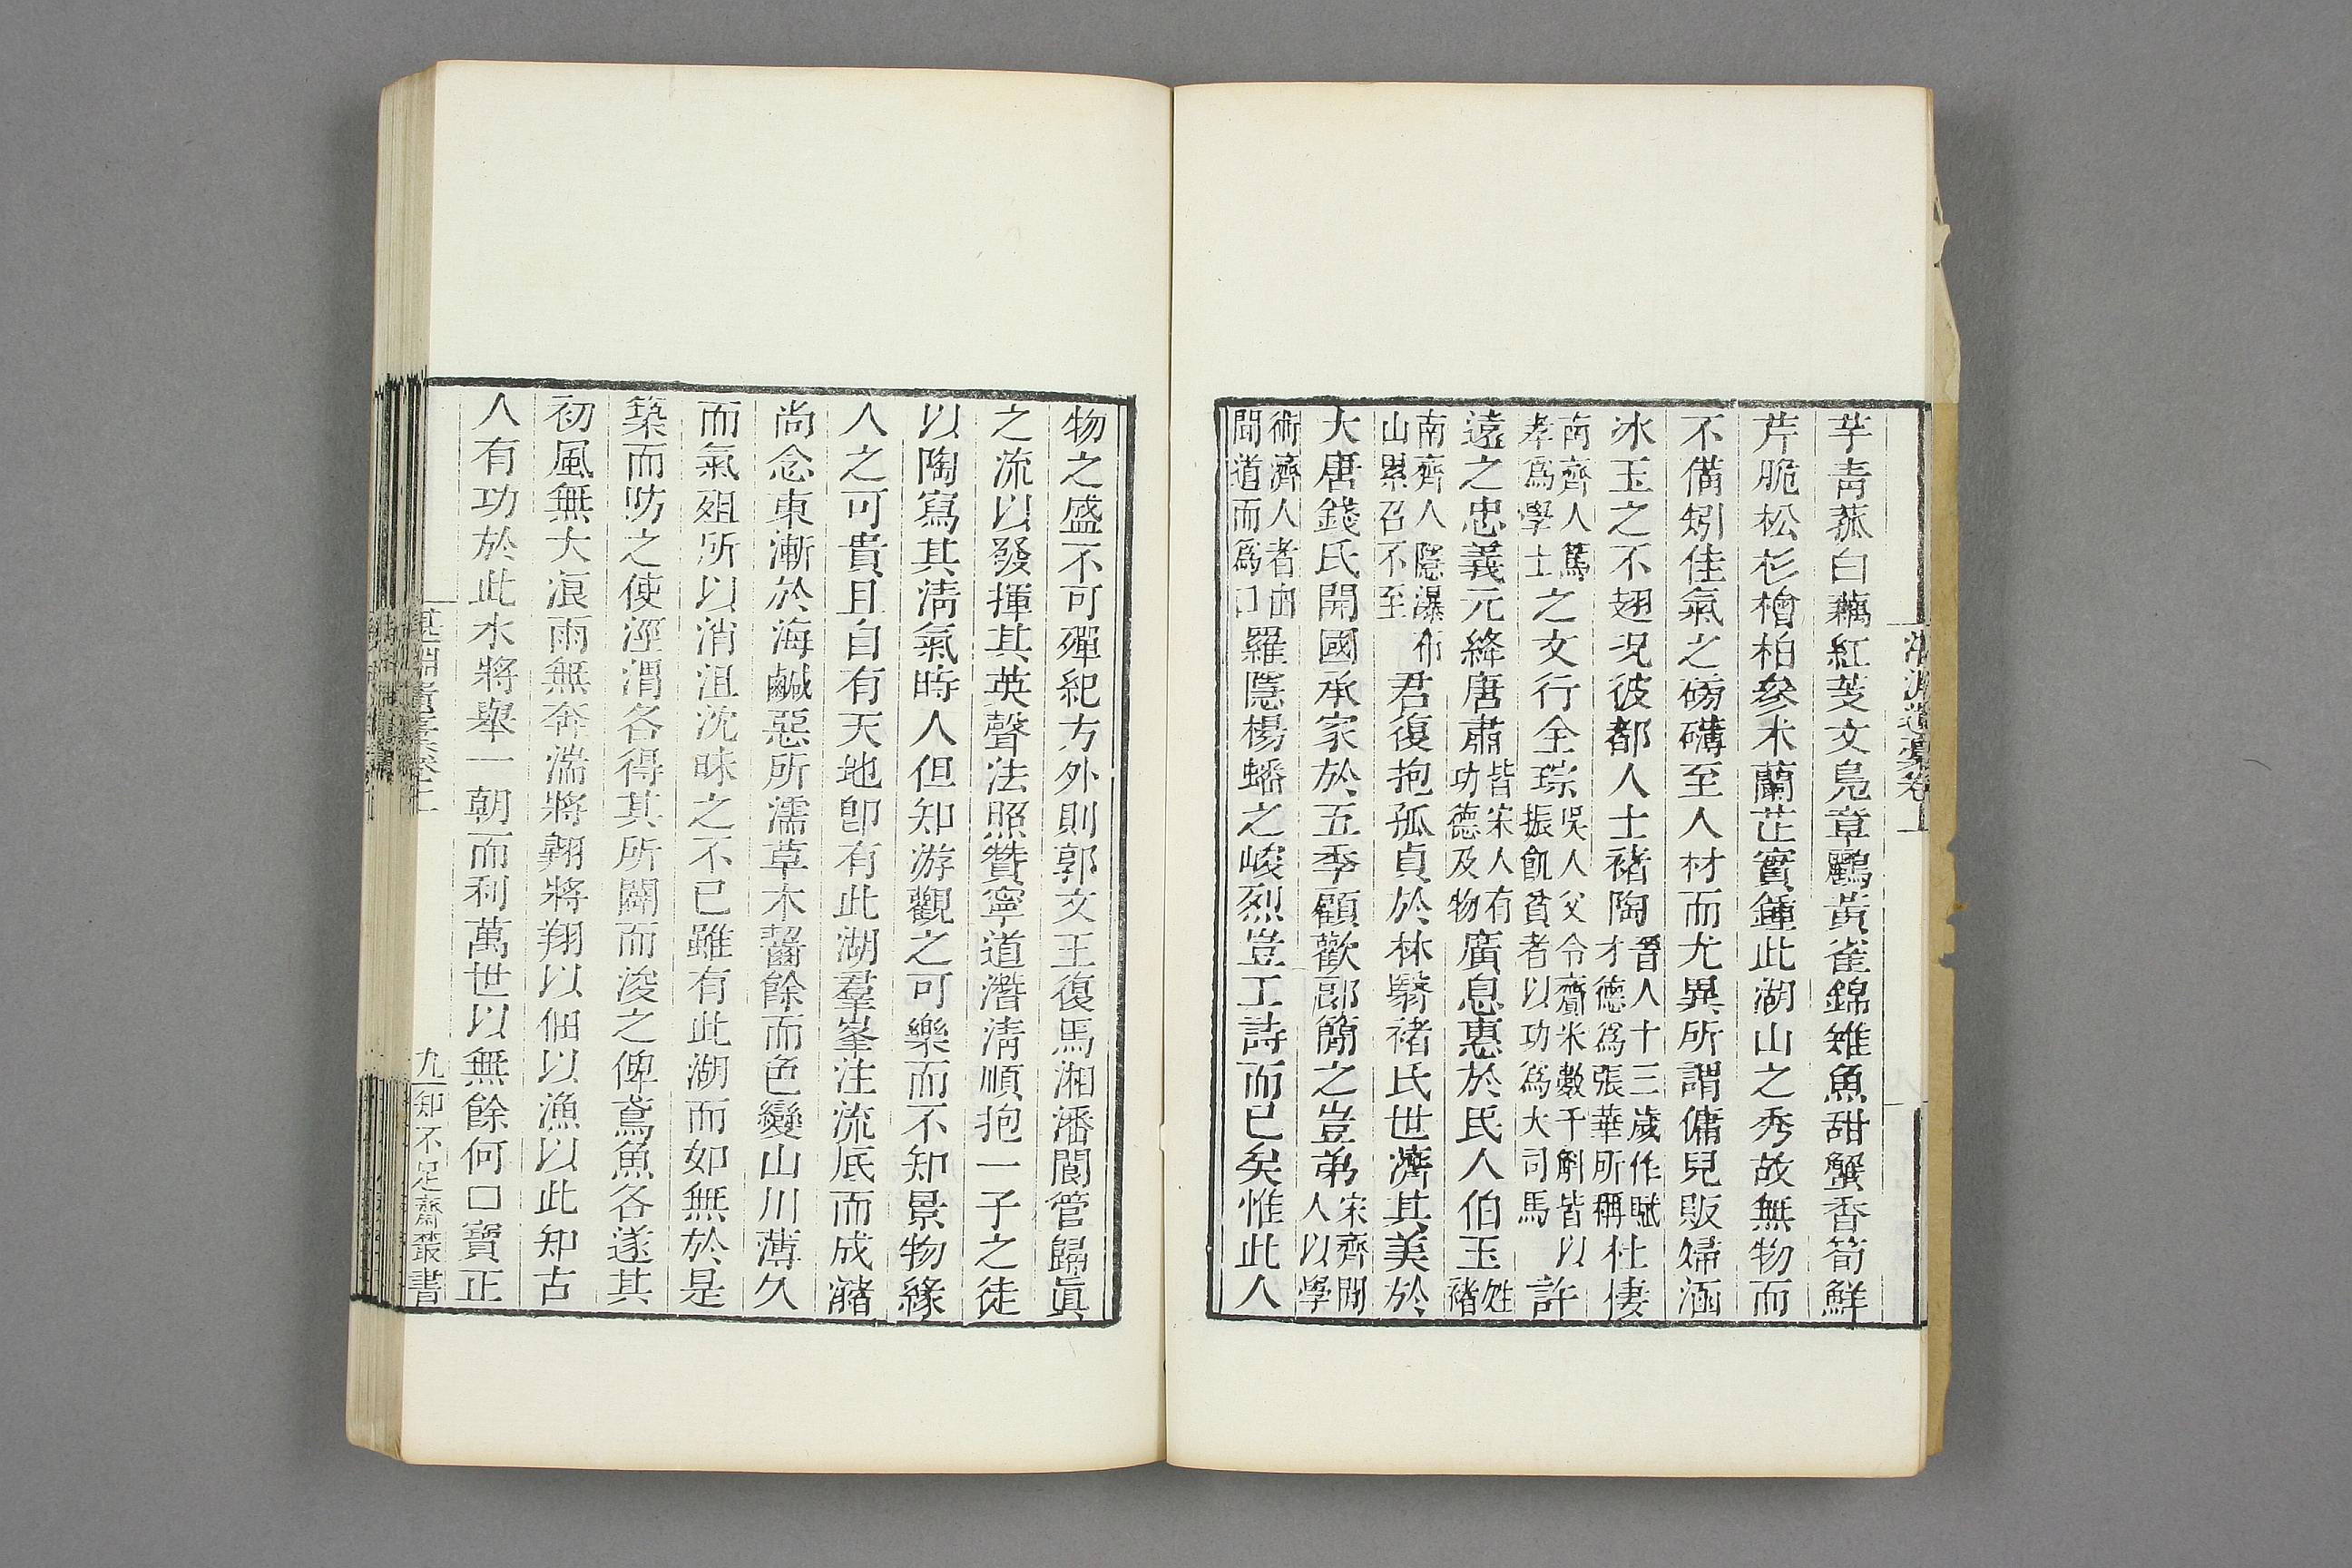 湛淵遺稾卷上
芋青菰白藕紅芡文鳧章鸝黃雀錦雉魚甜蟹香筍鮮
芹脆松杉檜柏參朮蘭芷實鍾此湖山之秀故無物而
不備矧佳氣之磅礴至人材而尤異所謂傭兒販婦涵
冰玉之不翅况彼都人士褚陶晉人十三歲作賦才德為張華所稱杜悽
南齊人篤孝為學士之文行全琮吳人父令齎米數千斛皆以振飢貧者以功為大司馬許
遠之忠義元絳唐肅皆宋人有功德及物廣息惠於民人伯玉姓褚
南齊人隱瀑布山累召不至君復抱孤貞於林翳褚氏世濟其美於
大唐錢氏開國承家於五季顧歡郎簡之豈弟宋齊間人以學
術濟人者由聞道而為口羅隱楊蟠之峻烈豈工詩而已矣惟此人
物之盛不可殫紀方外則郭文王復馬湘潘閬管歸眞
之流以發揮其英聲法照贊寧道潛清順抱一子之徒
以陶寫其清氣時人但知游觀之可樂而不知景物緣
人之可貴且自有天地卽有此湖羣峯注流底而成瀦
尚念東漸於海鹹惡所濡草木齧餘而色變山川薄久
而氣殂所以消沮沈昧之不已雖有此湖而如無於是
築而防之使涇渭各得其所闢而浚之俾鳶魚各遂其
初風無大浪雨無奔湍將翱將翔以佃以漁以此知古
人有功於此水將舉一朝而利萬世以無餘何口寶正
湛淵遺稾卷上
九
知不足齋叢書